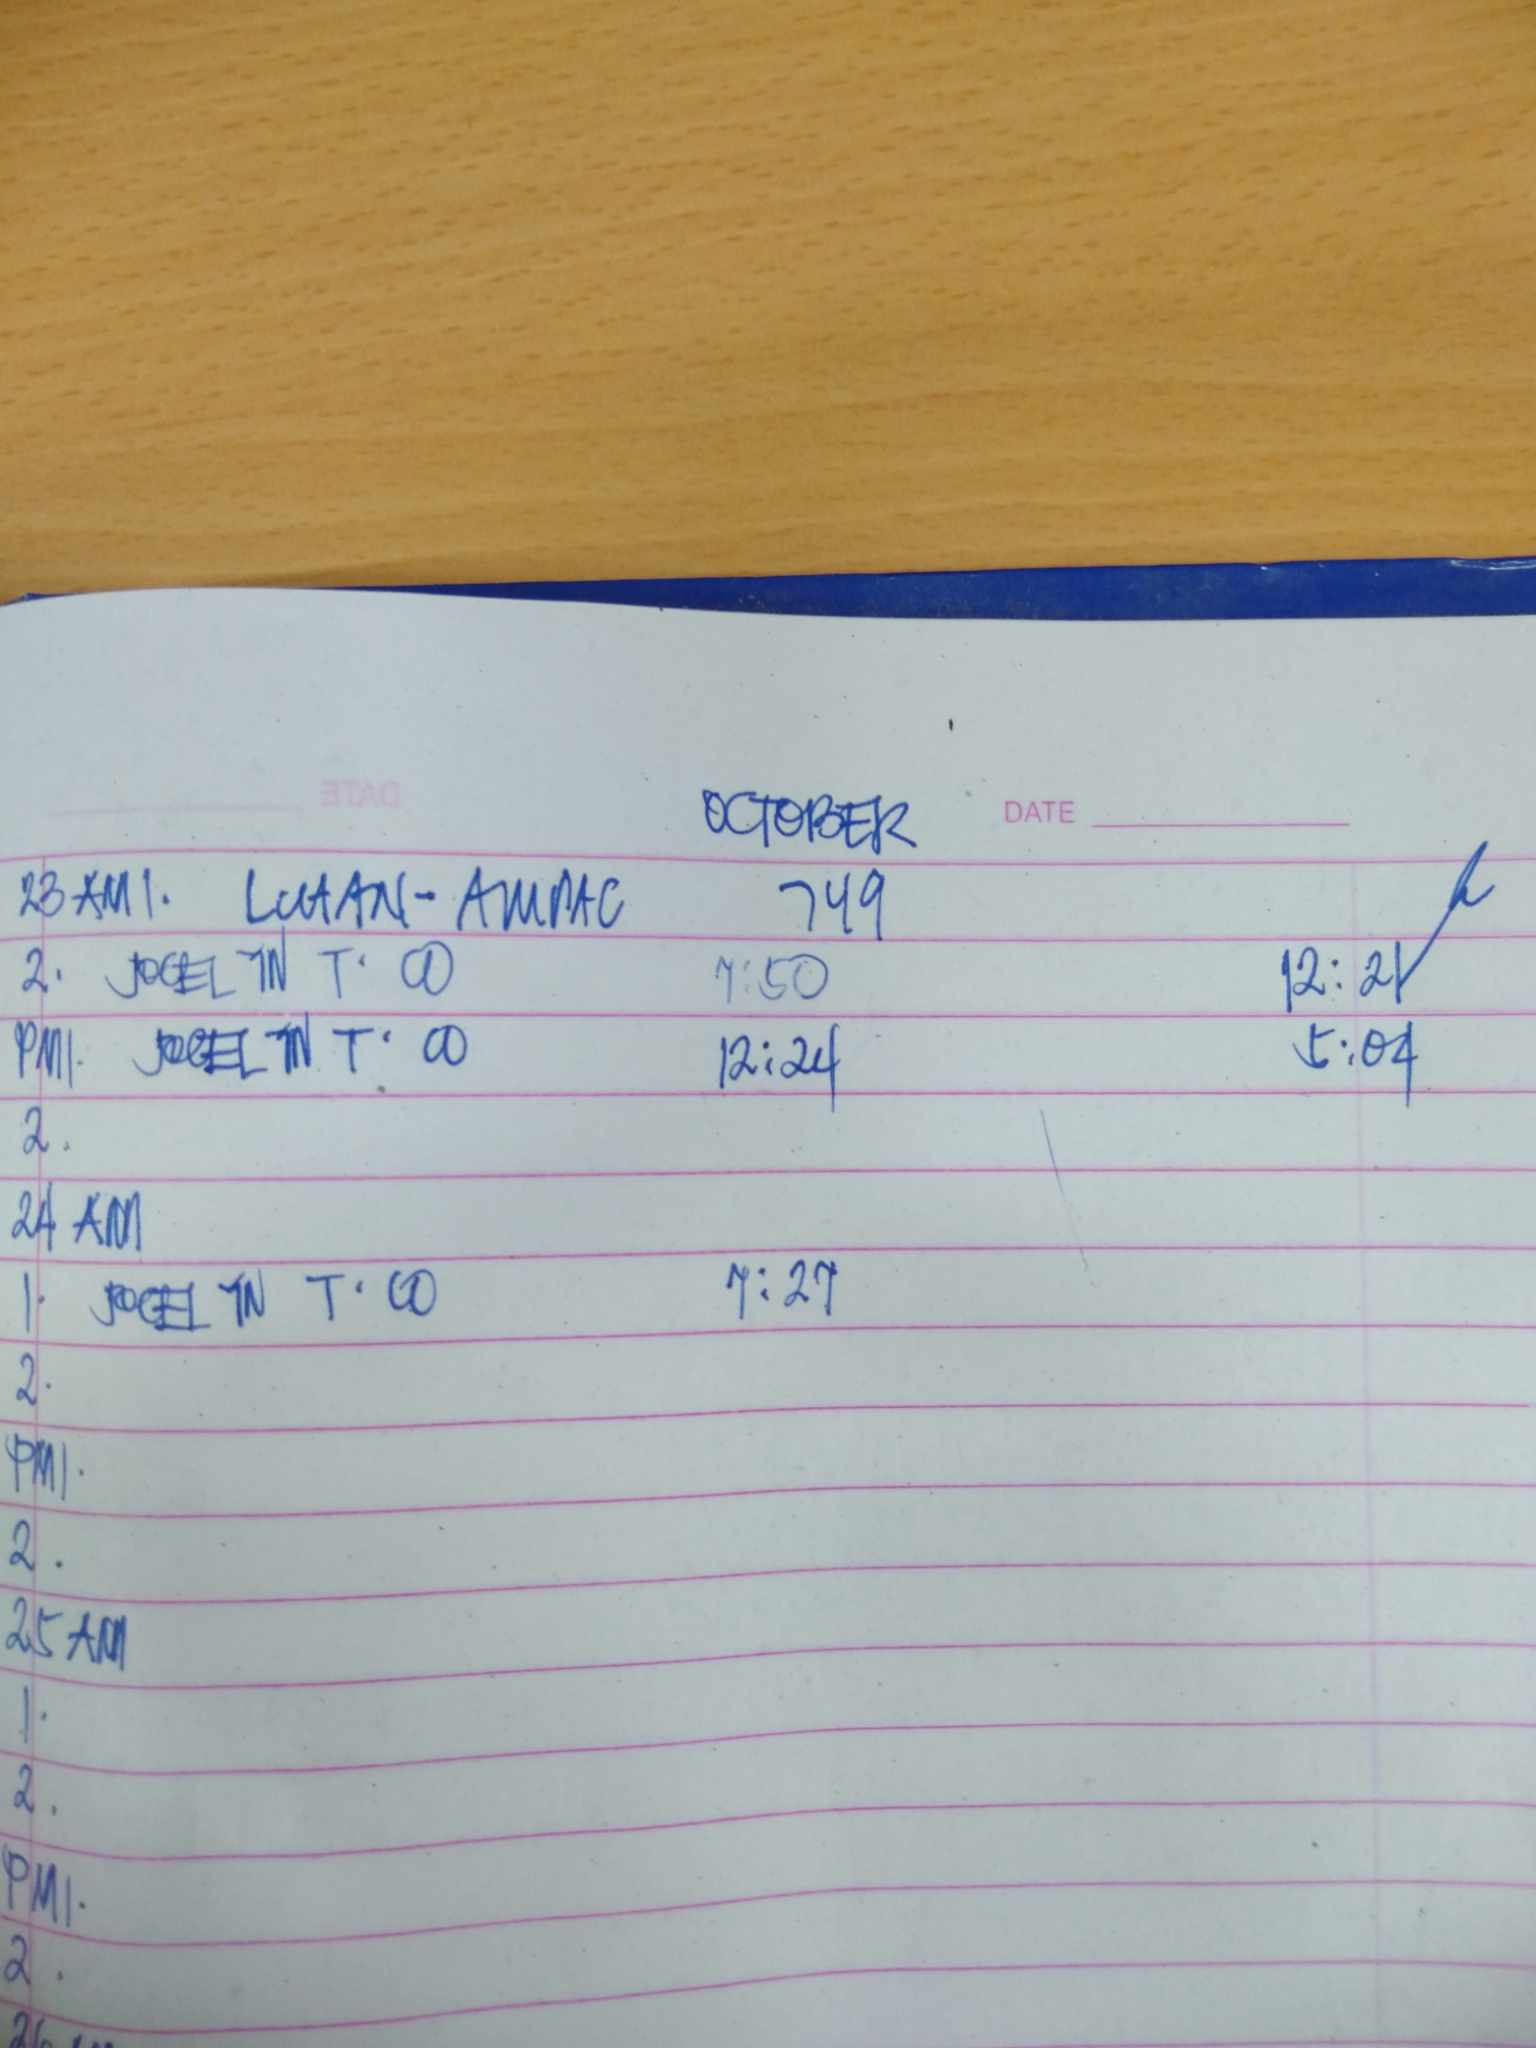 OCTOBER DATE
23 AM 1. LUTAN-AMPAC 749
2. JOCELYN T. CO 7:50 12:21
PM 1. JOCELYN T. CO 12:24 5:04
2.
24 AM
1. JOCELYN T. CO 7:27
2.
PM 1.
2.
25 AM
1.
2.
PM 1.
2.